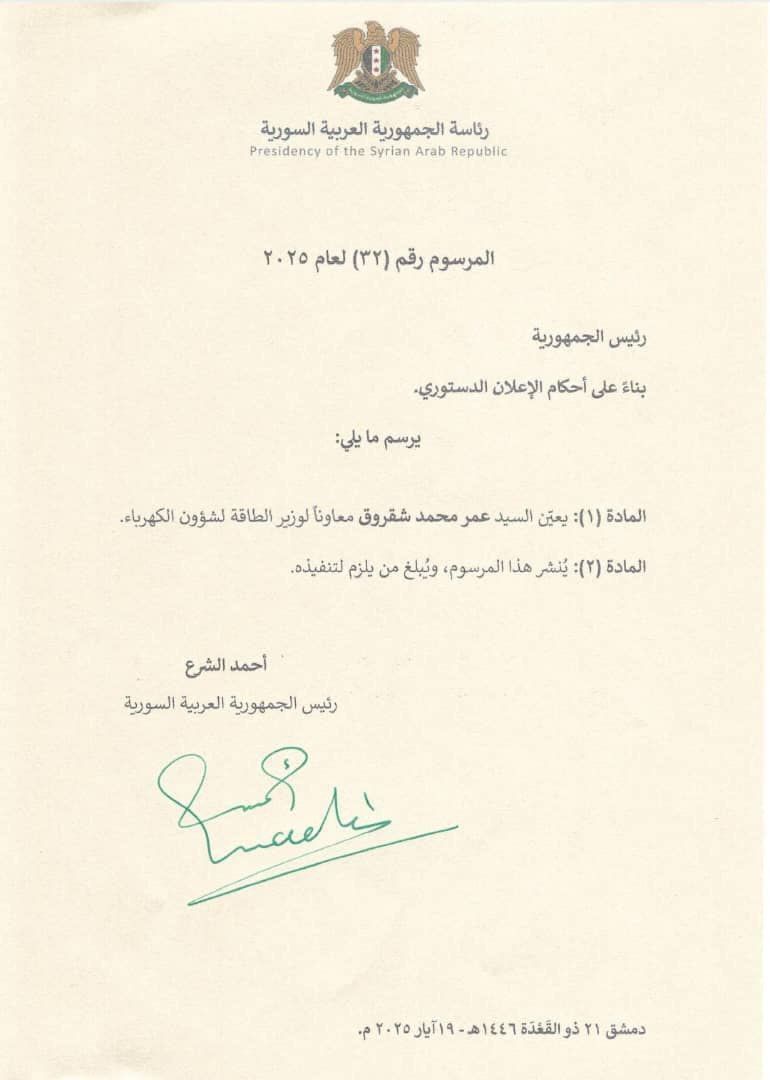 رئاسة الجمهورية العربية السورية
Presidency of the Syrian Arab Republic
المرسوم رقم (٣٢) لعام ٢٠٢٥
رئيس الجمهورية
بناءً على أحكام الإعلان الدستوري.
يرسم ما يلي:
المادة (١): يعيّن السيد عمر محمد شقروق معاوناً لوزير الطاقة لشؤون الكهرباء.
المادة (٢): يُنشر هذا المرسوم، ويُبلغ من يلزم لتنفيذه.
أحمد الشرع
رئيس الجمهورية العربية السورية
دمشق ٢١ ذو القَعْدَة ١٤٤٦هـ - ١٩آيار ٢٠٢٥ م.